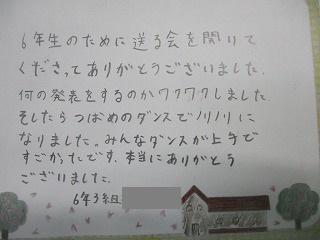 6年生のために送る会を開いて
くださってありがとうございました.
何の発表をするのかワクワクしました.
そしたらつばめのダンスでノリノリに
なりました。みんなダンスが上手で
すごかったです.本当にありがとう
ございました.
6年3組